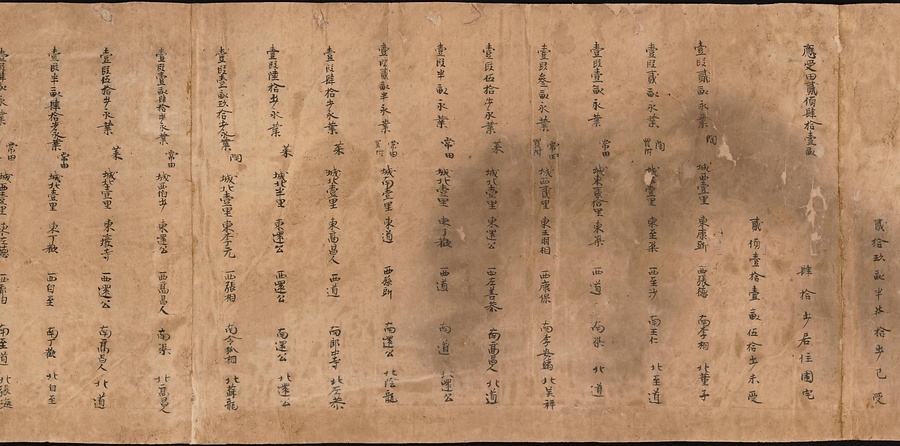 應受田貳頃肆拾壹畝
貳拾玖畝半柒拾步已受
貳頃壹拾壹畝伍拾步未受
肆拾步居住園宅
壹段貳畝永業 陶 城西壹里 東康 西張德 南李相 北董子
壹段貳畝永業 陶 城 壹里 東至渠 西至沙 南王仁 北至道
壹段壹畝永業 常田 城東貳拾里 東渠 西道 南渠 北道
壹段叁畝永業 常田 城西貳里 東王羽相 西康保 南李 北吴祥
壹段伍拾步永業 菜 城北壹里 東還公 西左善恭 南高昌人 北道
壹段半畝永業 常田 城北壹里 東丁歡 西道 南道 北還公
壹段貳畝半永業 常田 城南壹里 東道 西孫 南還公 北陰龍
壹段肆拾步永業 菜 城北壹里 東高昌人 西道 南郎中寺 北左恭
壹段陸拾步永業 菜 城北半里 東還公 西還公 南還公 北還公
壹段壹畝玖拾步永業 陶 城北壹里 東李元 西張相 南令狐相 北蘇龍
壹段壹畝肆拾步永業 常田 城西 步 東還公 西高昌人 南渠 北高昌人
壹段伍拾步永業 菜 城北壹里 東 寺 西還公 南高昌人 北道
壹段半畝肆拾步永業 常田 城北壹里 東丁歡 西自至 南丁歡 北自至
常田 南至道 北張